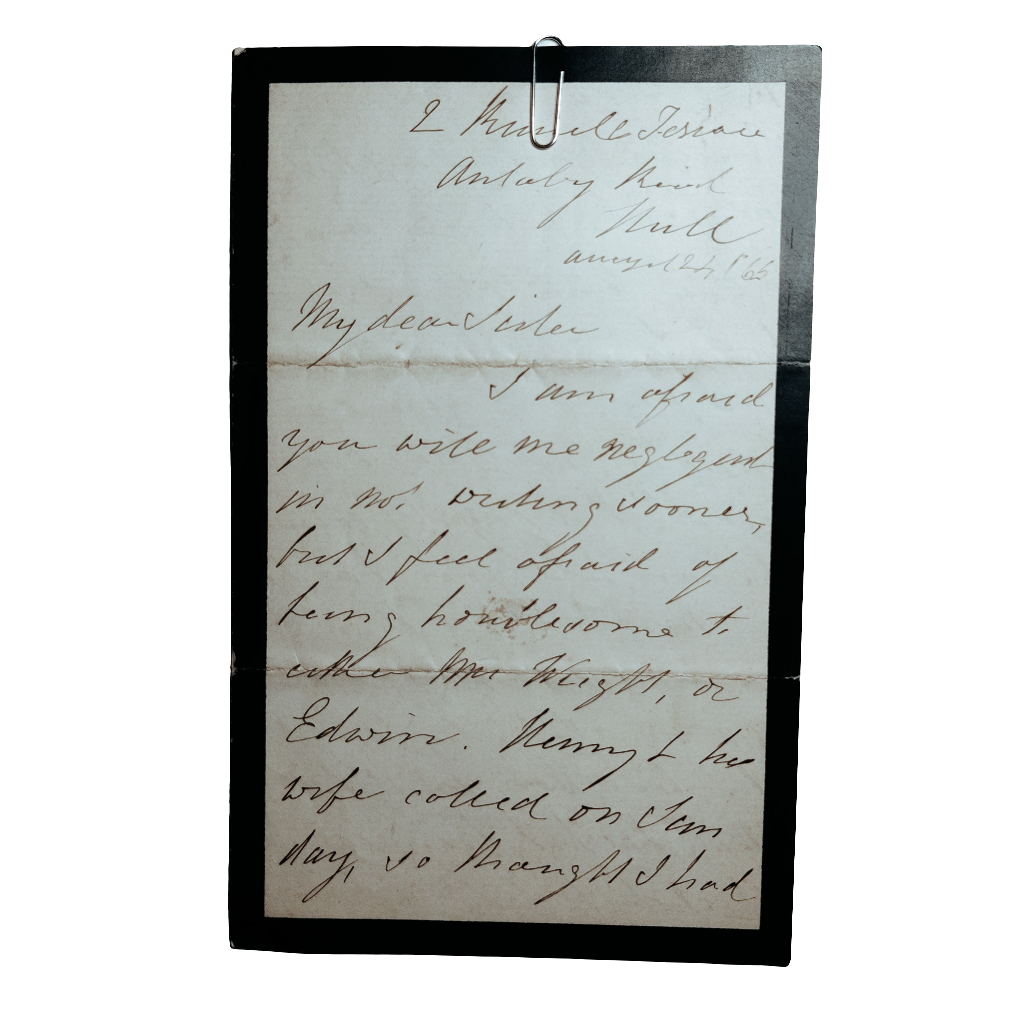 2 Russell Terrace
Anlaby Road
Hull
August 24 / 66
My dear Sister
I am afraid
you will me neglegent
in not writing sooner,
but I feel afraid of
being troublesome to
either Mr Wright, or
Edwin. Henry & his
wife called on Sun
day, so thought I had